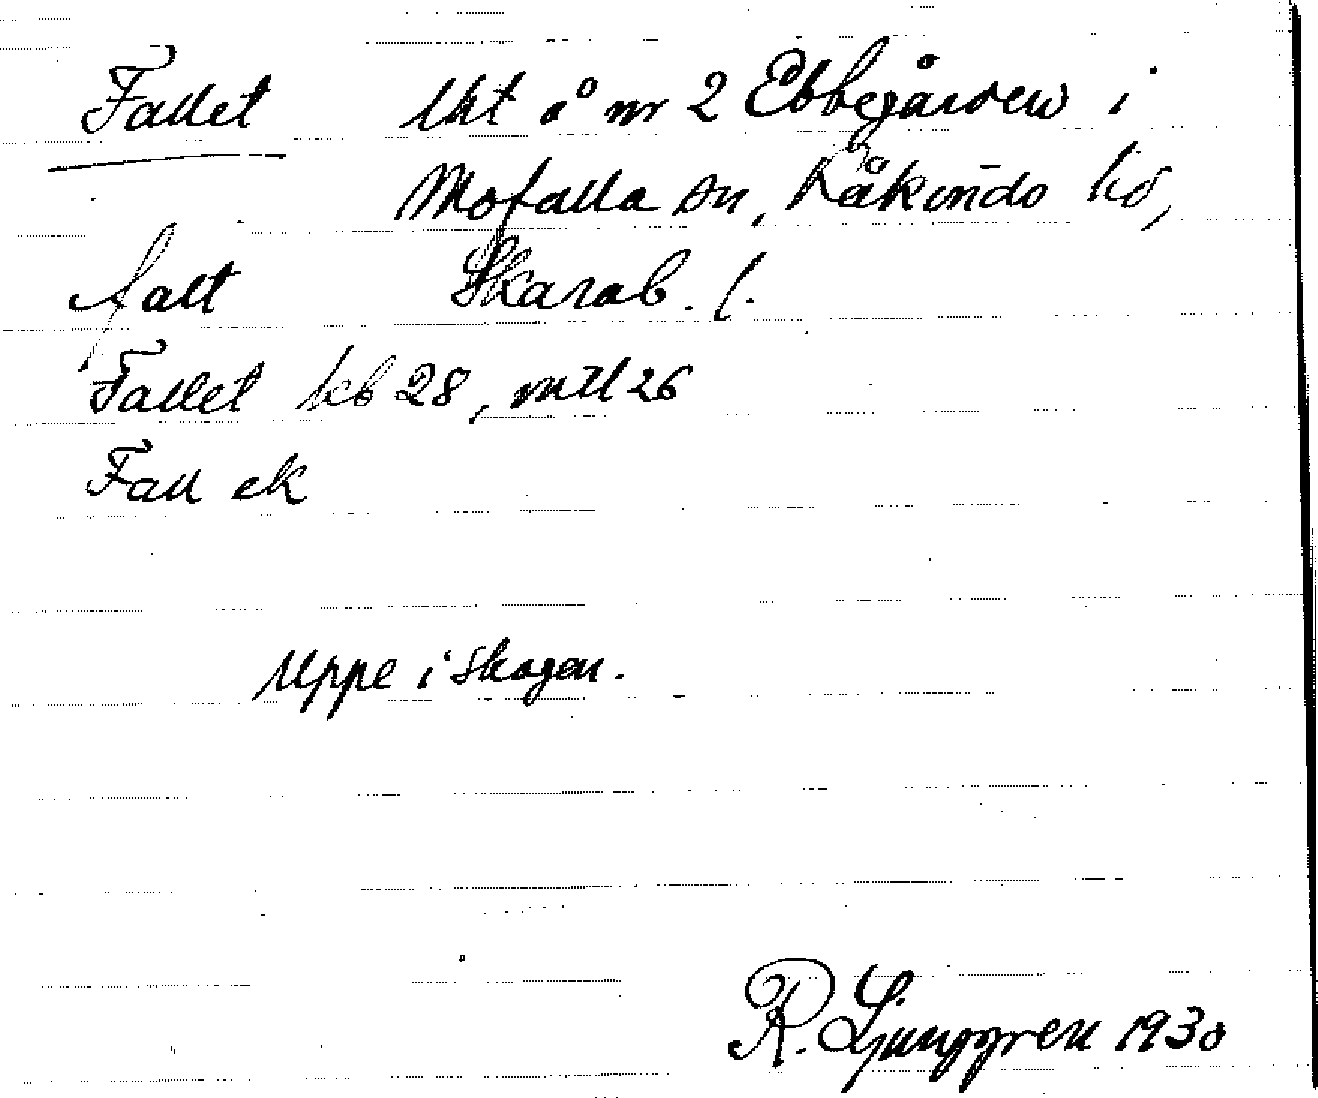 Fallet lht å nr 2 Ebbegården i
Mofalla sn, Kåkinds hd,
falt Skarab. l.
Fallet kb 28, mtl 26
Fall ek
Uppe i skogen.
R. Ljunggren 1930